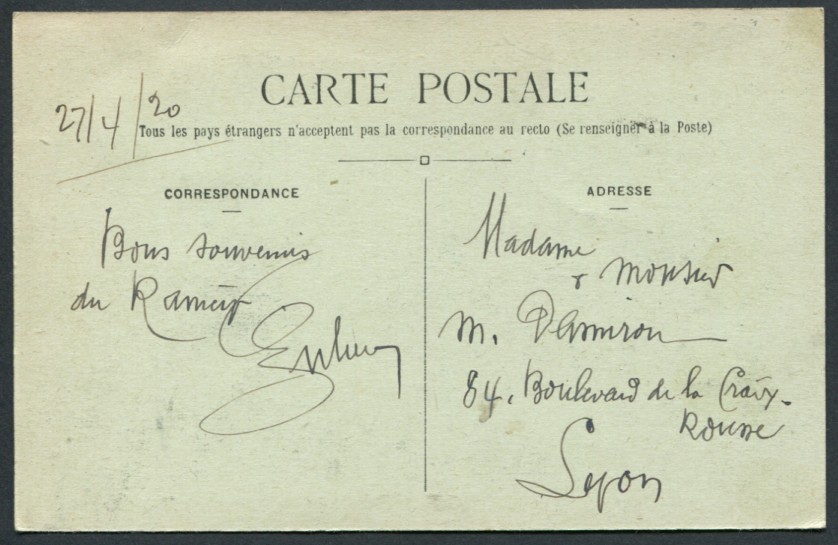 CARTE POSTALE
27/4/20
Tous les pays étrangers n'acceptent pas la correspondance au recto (Se renseigner à la Poste)
CORRESPONDANCE
Bons souvenirs
du
ADRESSE
Madame
& Monsieur
M. Damiron
84, Boulevard de la Croix-
Rousse
Lyon